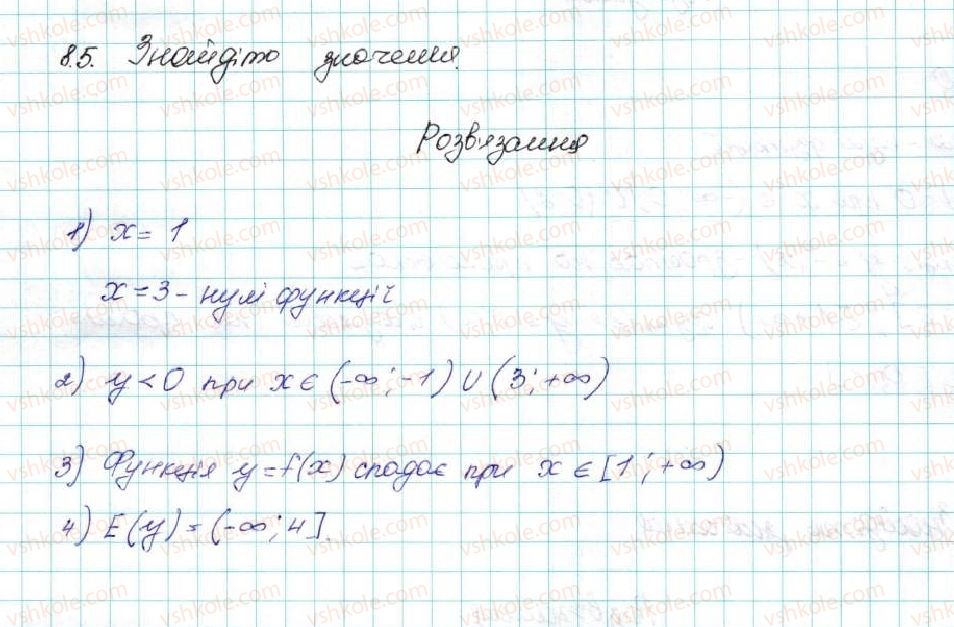 8.5. Знайдіть значення.
Розв'язання
1) x = 1
x = 3 - нулі функції
2) y < 0 при x ∈ (-∞; -1) ∪ (3; +∞)
3) Функція y = f(x) спадає при x ∈ [1; +∞)
4) E(y) = (-∞; 4].